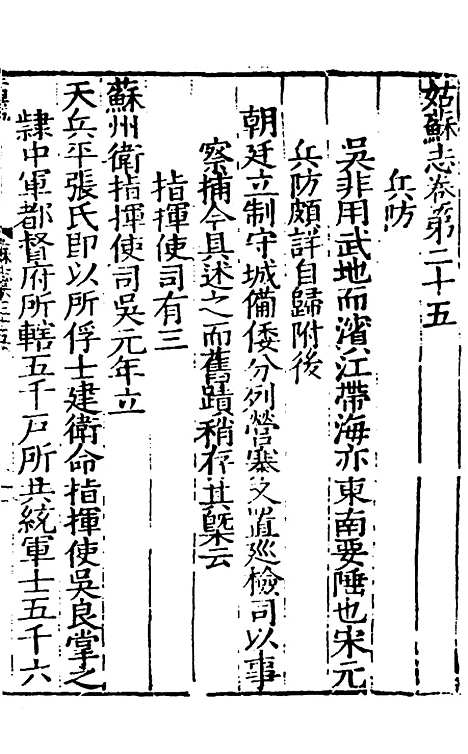 姑蘇志卷第二十五
兵防
吳非用武地而濱江帶海亦東南要陲也宋元
兵防頗詳自歸附後
朝廷立制守城備倭分列營寨又置廵檢司以事
察捕今具述之而舊蹟稍存其槩云
指揮使司有三
蘇州衛指揮使司吳元年立
天兵平張氏即以所俘士建衛命指揮使吳良掌之
隸中軍都督府所轄五千戶所共統軍士五千六